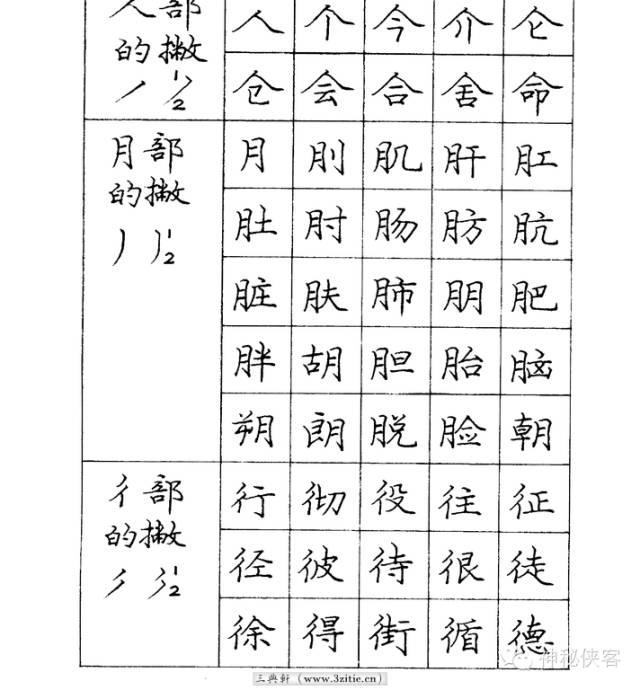 人部
的撇
丿 丿½
人 个 今 介 仑
仓 会 合 舍 命
月部
的撇
丿 丿½
月 刖 肌 肝 肛
肚 肘 肠 肪 肮
脏 肤 肺 朋 肥
胖 胡 胆 胎 脑
朔 朗 脱 脸 朝
彳部
的撇
½
行 彻 役 往 征
径 彼 待 很 徒
徐 得 街 循 德
三典轩 (www.3zitie.cn)
神秘侠客